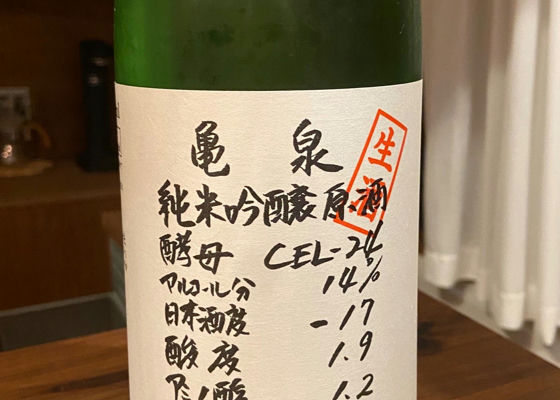 亀泉
生酒
純米吟醸原酒
酵母 CEL-24
アルコール分 14%
日本酒度 -17
酸度 1.9
アミノ酸 1.2